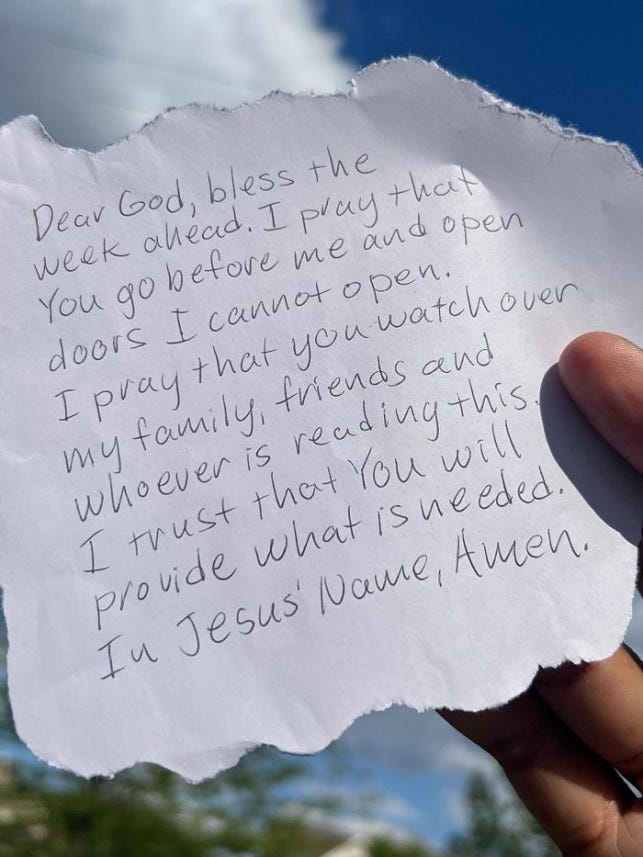 Dear God, bless the
week ahead. I pray that
You go before me and open
doors I cannot open.
I pray that you watch over
my family, friends and
whoever is reading this.
I trust that You will
provide what is needed.
In Jesus' Name, Amen.